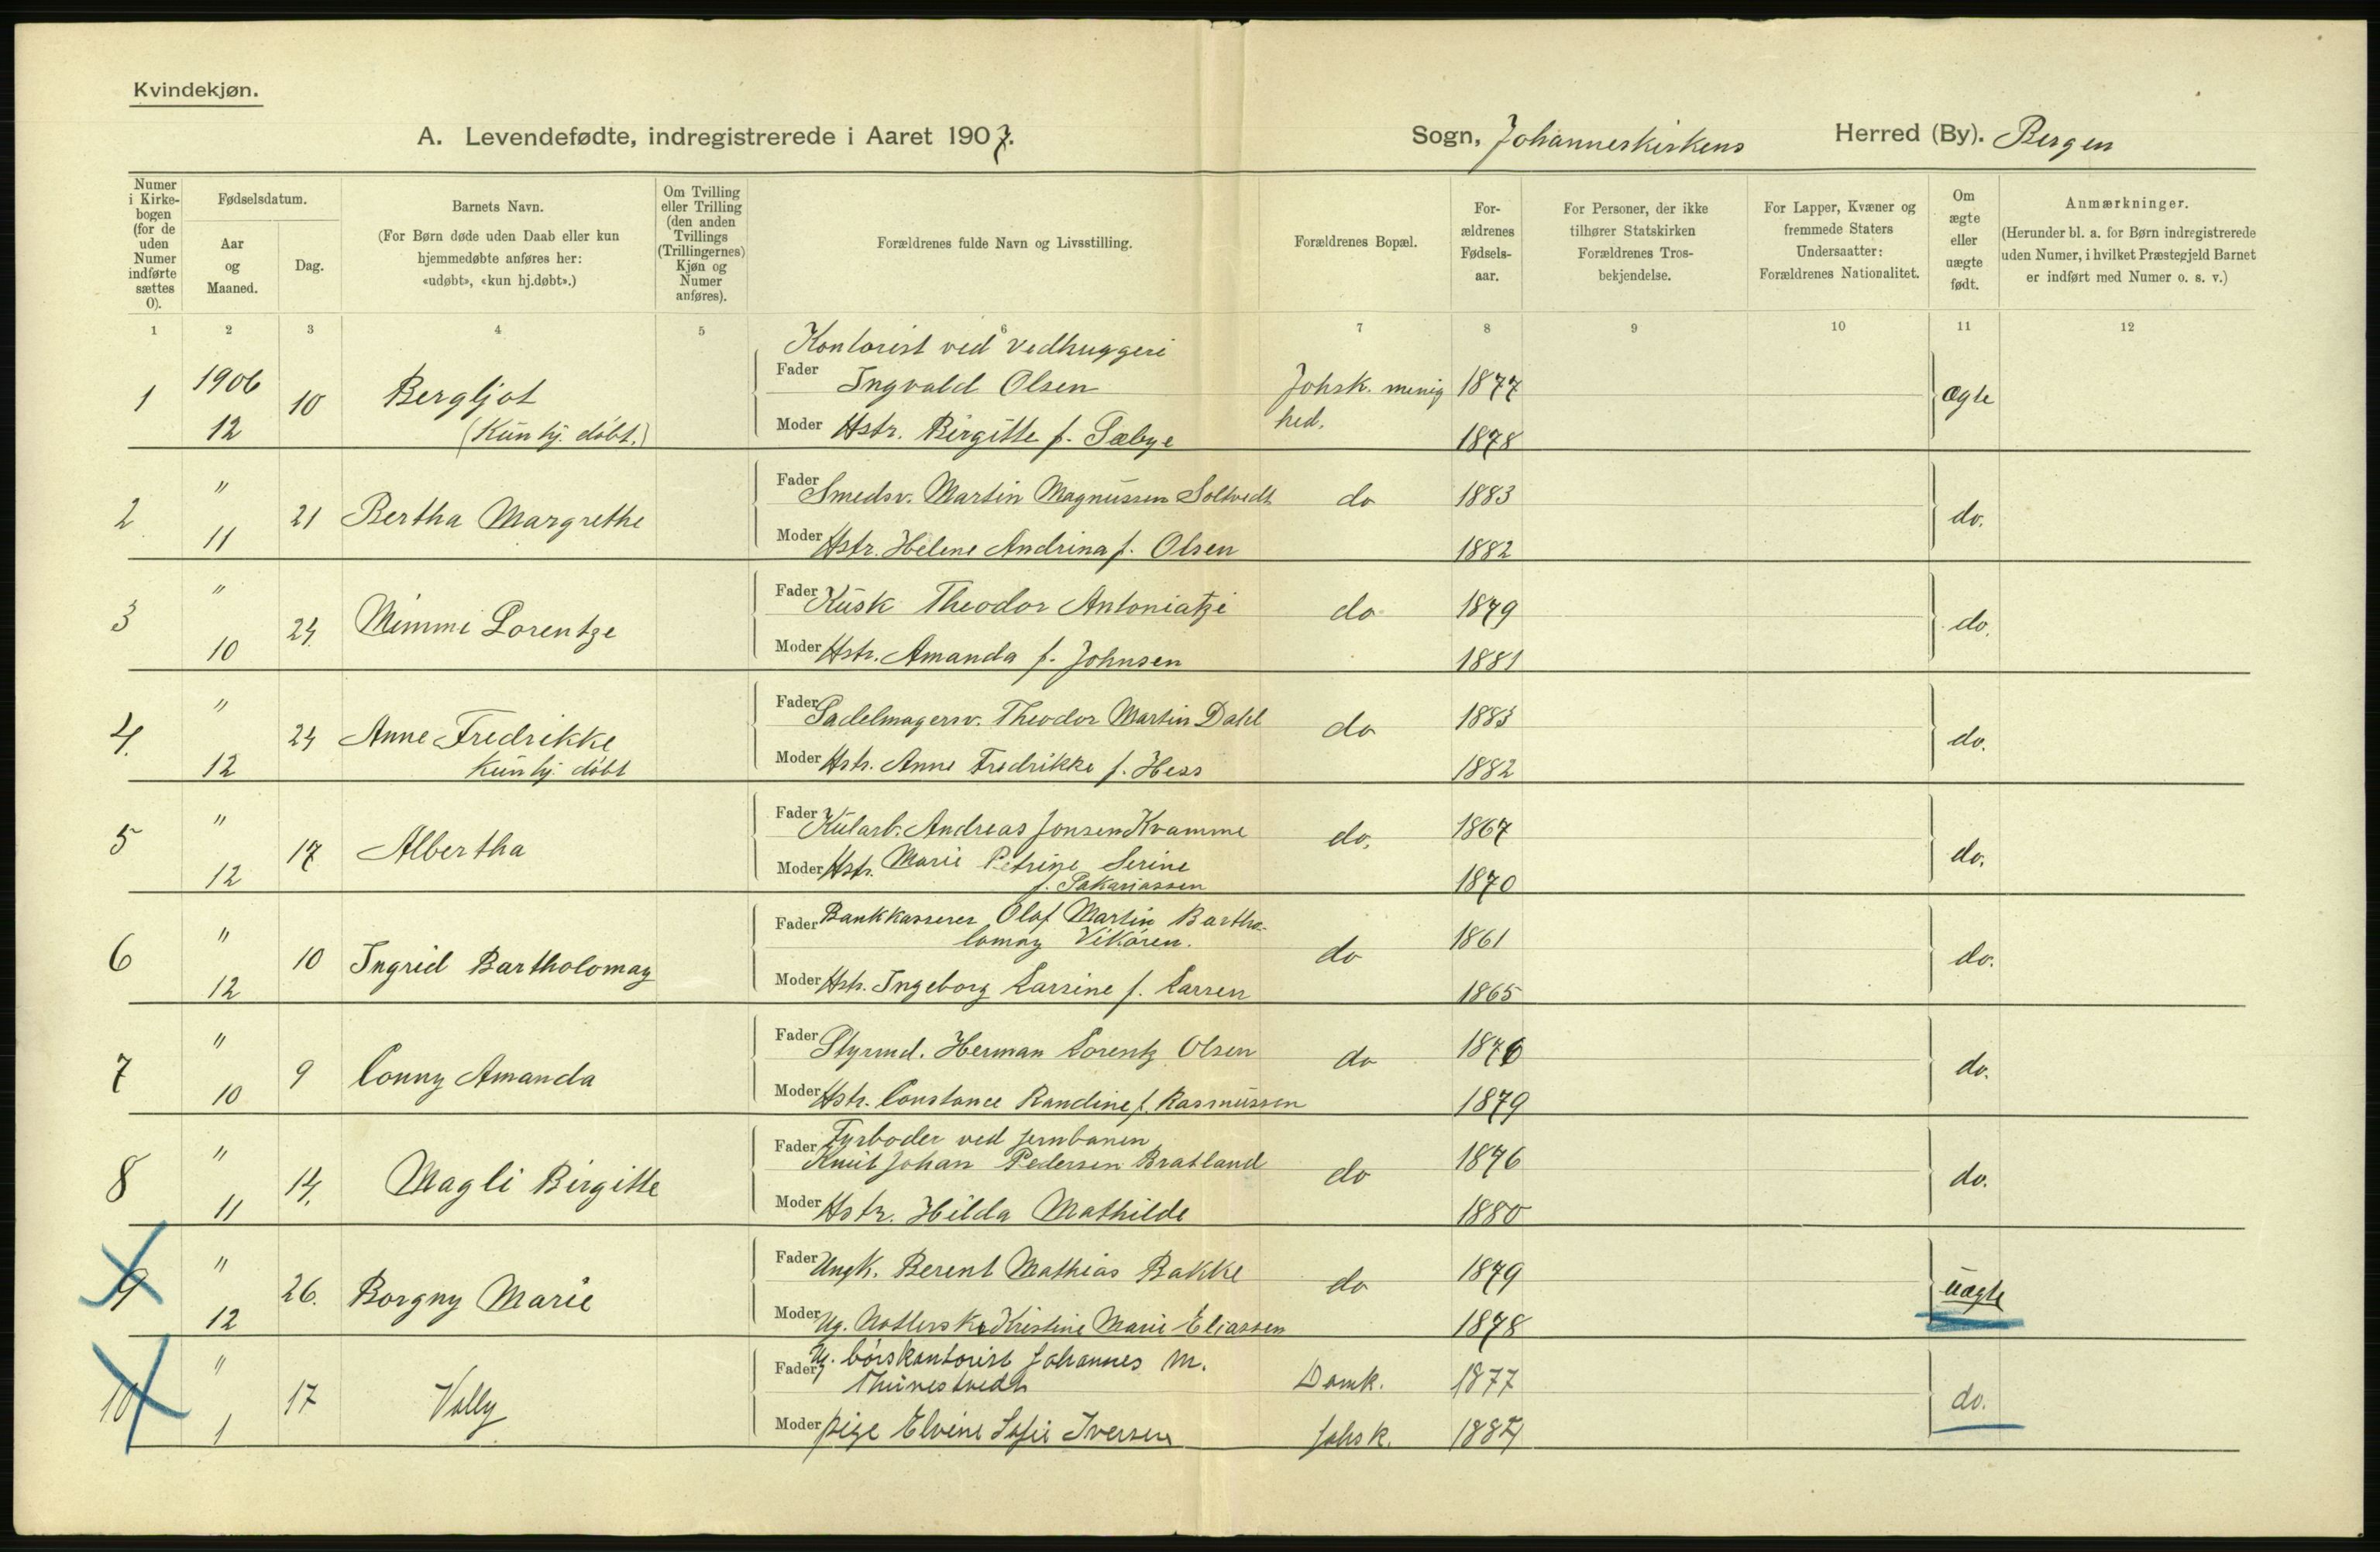 Kvindekjøn.
A. Levendefødte, indregistrerede i Aaret 1907.
Sogn, Johanneskirkens Herred (By). Bergen
Numer i Kirkebogen (for de uden Numer indførte sættes 0).
Fødselsdatum.
Aar og Maaned.
Dag.
Barnets Navn.
(For Børn døde uden Daab eller kun hjemmedøbte anføres her: «udøbt», «kun hj.døbt».)
Om Tvilling eller Trilling (den anden Tvillings (Trillingernes) Kjøn og Numer anføres).
Forældrenes fulde Navn og Livsstilling.
Forældrenes Bopæl.
Forældrenes Fødselsaar.
For Personer, der ikke tilhører Statskirken Forældrenes Trosbekjendelse.
For Lapper, Kvæner og fremmede Staters Undersaatter: Forældrenes Nationalitet.
Om ægte eller uægte født.
Anmærkninger.
(Herunder bl. a. for Børn indregistrerede uden Numer, i hvilket Præstegjeld Barnet er indført med Numer o. s. v.)
1 2 3 4 5 6 7 8 9 10 11 12
Kontorist ved Vedhuggeri
1 1906 10 Bergljot Fader Ingvald Olsen Johsk. menig 1877 ægte
12 (Kun hj. døbt.) Moder Hstr. Birgitte f. Sæbye hed. 1878
2 " 21 Bertha Margrethe Fader Smedsv. Martin Magnussen Soltvedt do 1883 do.
11 Moder Hstr. Helene Andrina f. Olsen 1882
3 " 24. Mimmi Lorentze Fader Kusk Theodor Antoniatzi do 1879 do.
10 Moder Hstr. Amanda f. Johnsen 1881
4. " 24 Anne Fredrikke Fader Sadelmagersv. Theodor Martin Dahl do 1883 do.
12 Kun hj. døbt Moder Hstr. Anne Fredrikke f. Hess 1882
5 " 17 Albertha Fader Kularb. Andreas Jonsen Kvamme do. 1867 do.
12 Moder Hstr. Marie Petrine Serine
f. Sakariassen 1870
6 " 10 Ingrid Bartholomay Fader Bankkasserer Olaf Martin Bartho-
lomay Vikøren. do 1861 do.
12 Moder Hstr. Ingeborg Larsine f. Larsen 1865
7 " 9 Conny Amanda Fader Styrmd. Herman Lorentz Olsen do 1876 do.
10 Moder Hstr. Constance Randine f. Rasmussen 1879
8 " 14. Magli Birgitte Fader Fyrbøder ved Jernbanen
Knut Johan Pedersen Bratland do 1876 do.
11 Moder Hstr. Hilda Mathilde 1880
9 " 26. Borgny Marie Fader Ungk. Berent Mathias Bakke do 1879 uægte
12 Moder Ug. Kristine Marie Eliassen 1878
10 " 17 Fader Ug. børskontorist Johannes M.
Thunestvedt Domk. 1877 do.
1 Moder pige Elvine Sofie Iversen Johsk.